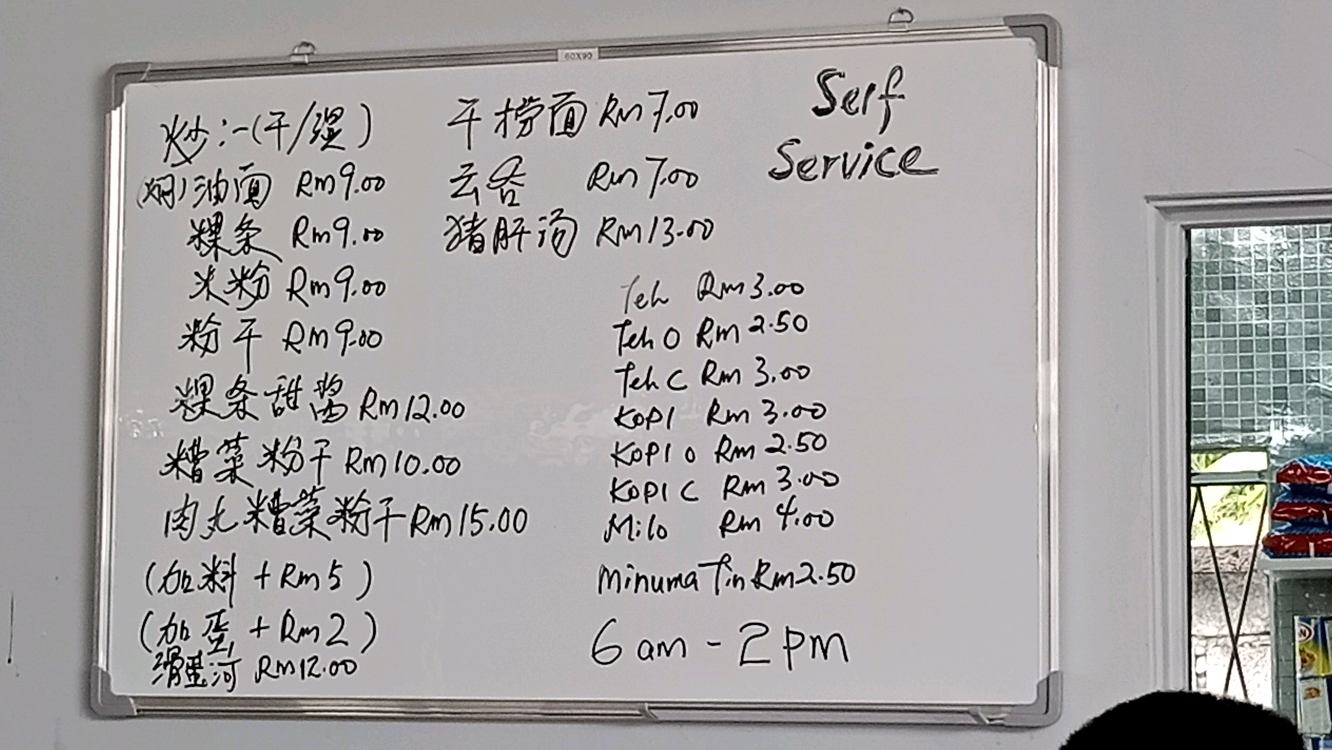 60X90
炒:-(干/湿)
(焖)油面 Rm9.00
粿条 Rm9.00
米粉 Rm9.00
粉干 Rm9.00
粿条甜酱 Rm12.00
糟菜粉干 Rm10.00
肉丸糟菜粉干 Rm15.00
(加料 + Rm5)
(加蛋 + Rm2)
滑蛋河 Rm12.00
干捞面 Rm7.00
云吞 Rm7.00
猪肝汤 Rm13.00
Self
Service
Teh Rm3.00
Teh O Rm2.50
Teh C Rm3.00
KOPI Rm3.00
KOPI O Rm2.50
KOPI C Rm3.00
Milo Rm4.00
minuma Tin Rm2.50
6am - 2pm